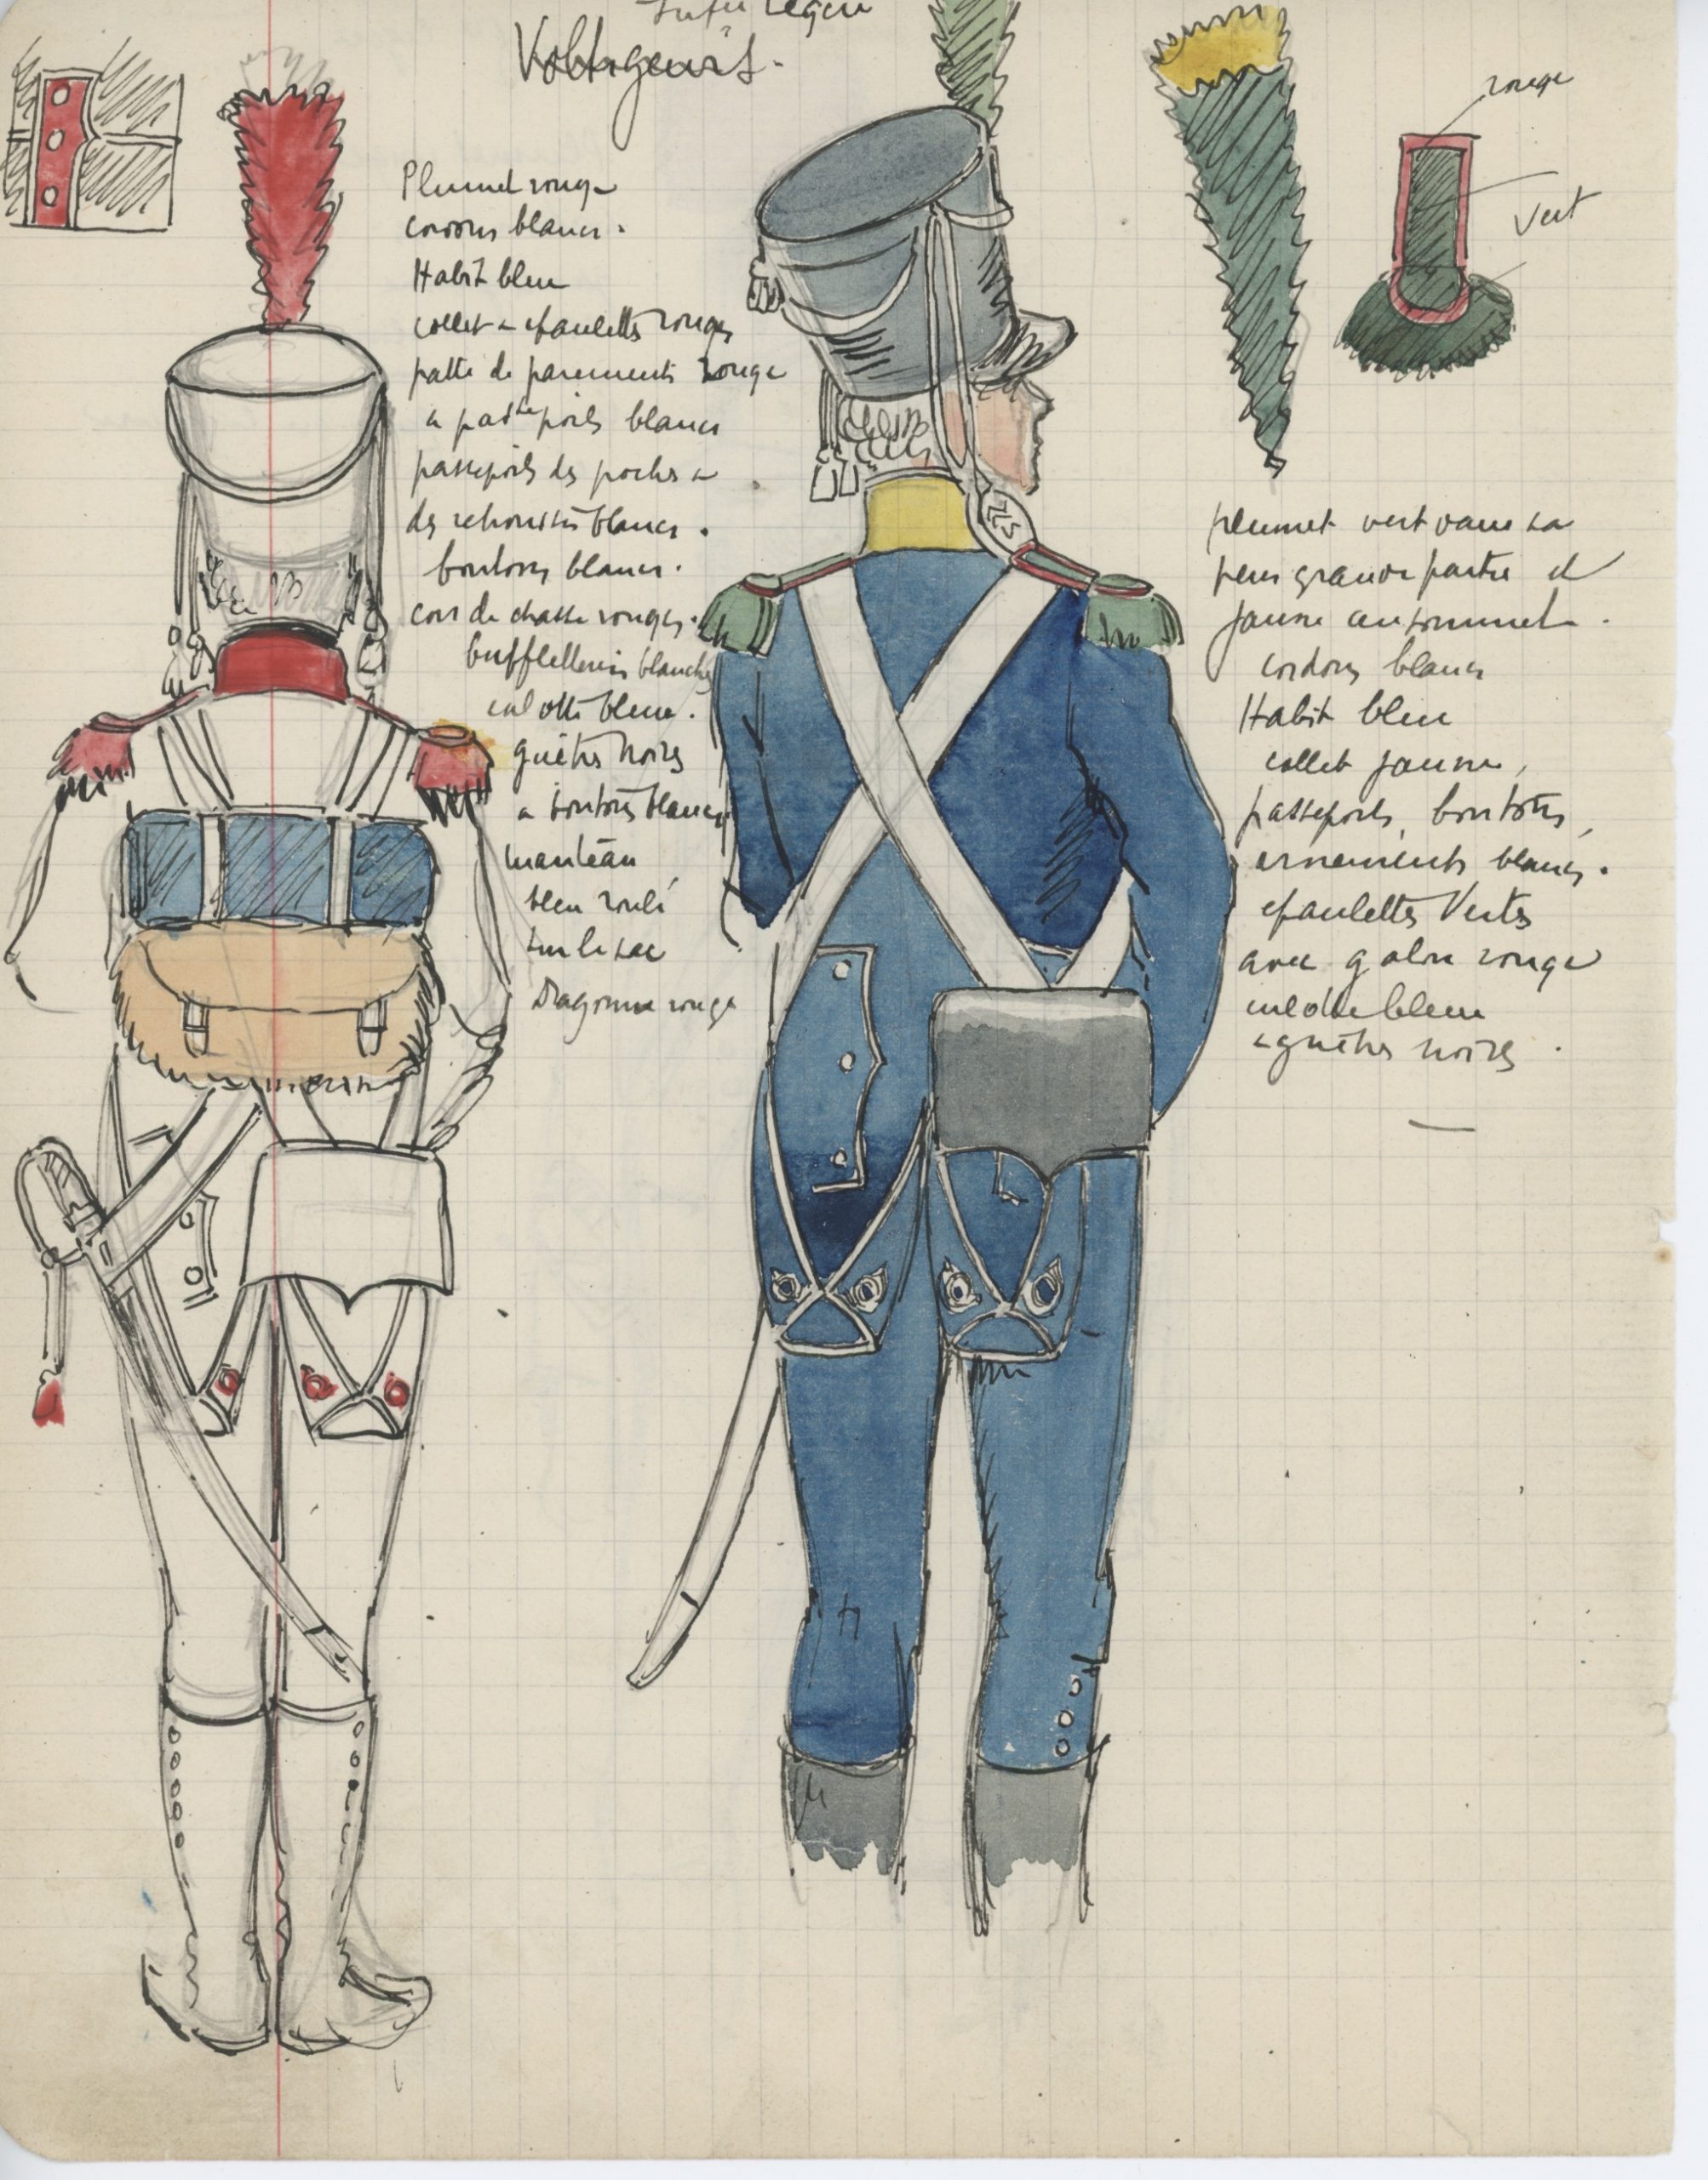 Infie Légère
Voltigeurs.
Plumet rouge
cordons blancs.
Habit bleu
collet & epaulettes rouges
patte de parements rouge
a passepoils blancs
passepoils des poches &
des retroussis blancs.
boutons blancs.
cors de chasse rouges.
buffleteries blanches
culotte bleue.
guêtres noires
a boutons blancs
manteau
bleu roulé
sur le sac
Dragonne rouge
rouge
vert
plumet vert dans sa
plus grande partie et
jaune au sommet.
cordons blancs
Habit bleu
collet jaune,
passepoils, boutons,
ornements blancs.
epaulettes Vertes
avec galon rouge
culotte bleue
& guêtres noires.